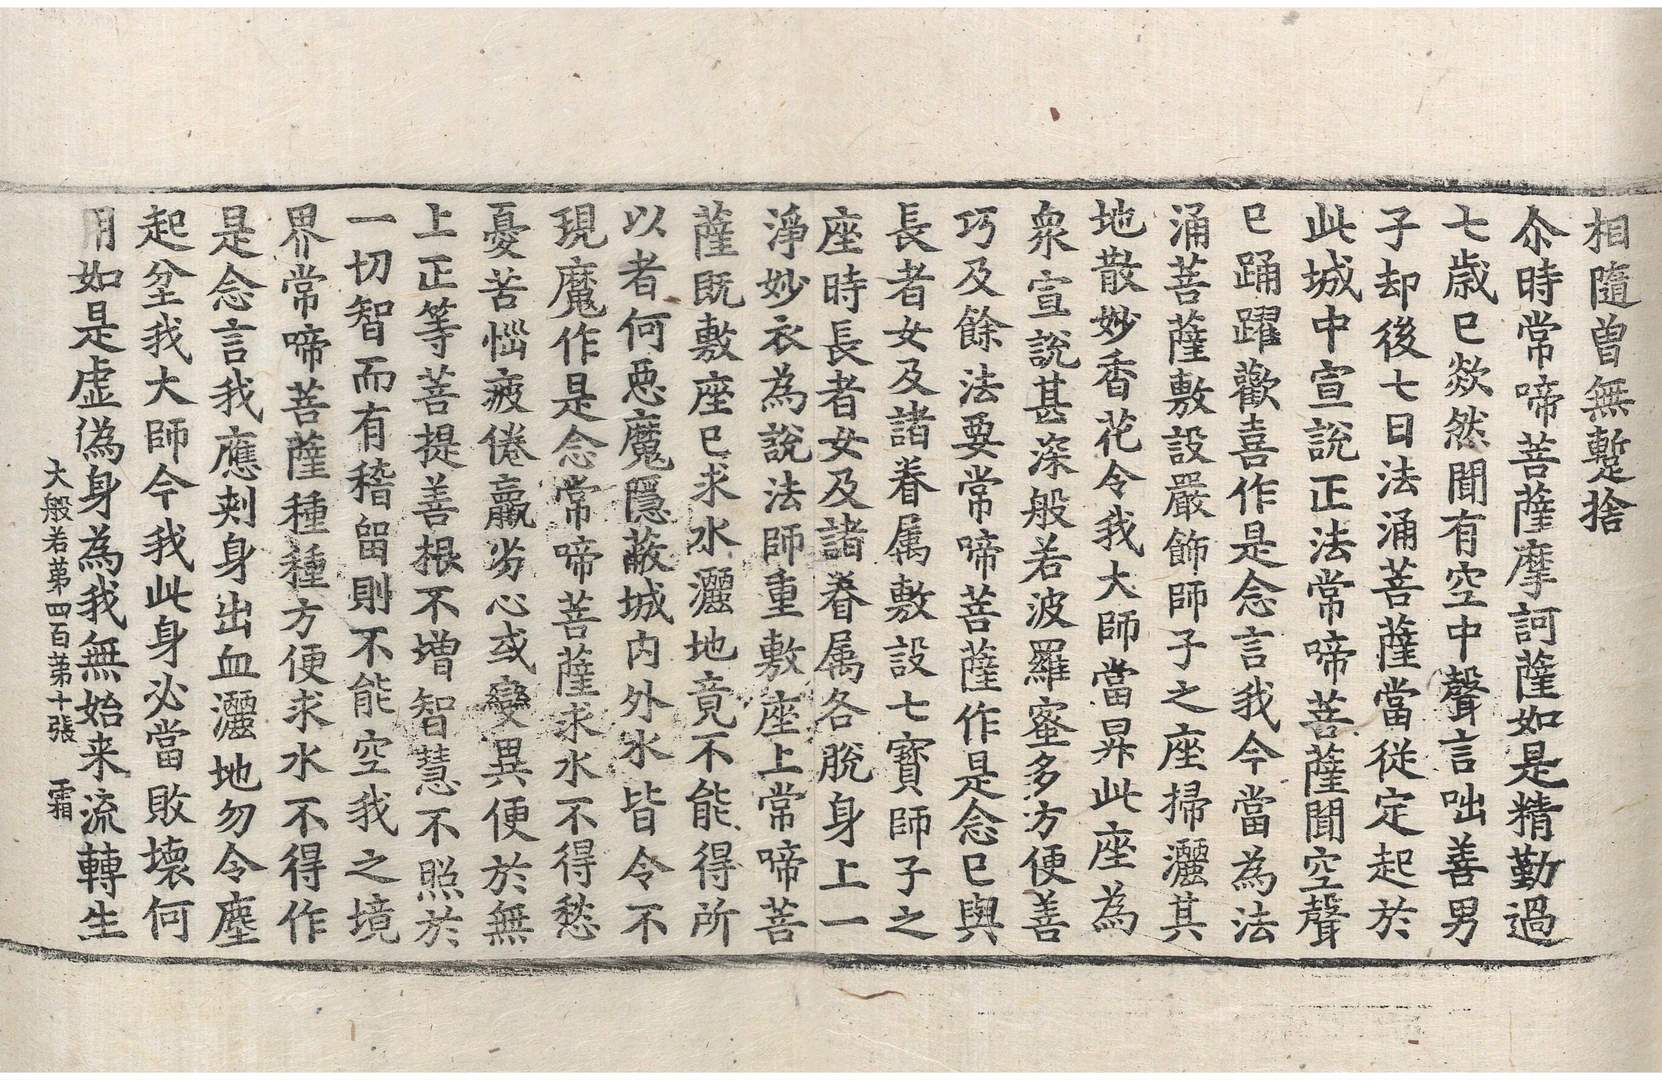 相隨曾無蹔捨
尒時常啼菩薩摩訶薩如是精勤過
七歲已欻然聞有空中聲言咄善男
子却後七日法涌菩薩當從定起於
此城中宣說正法常啼菩薩聞空聲
已踊躍歡喜作是念言我今當為法
涌菩薩敷設嚴飾師子之座掃灑其
地散妙香花令我大師當昇此座為
衆宣說甚深般若波羅蜜多方便善
巧及餘法要常啼菩薩作是念已與
長者女及諸眷属敷設七寶師子之
座時長者女及諸眷属各脫身上一
淨妙衣為說法師重敷座上常啼菩
薩旣敷座已求水灑地竟不能得所
以者何惡魔隱蔽城內外水皆令不
現魔作是念常啼菩薩求水不得愁
憂苦惱疲倦羸劣心或變異便於無
上正等菩提善根不增智慧不照於
一切智而有稽留則不能空我之境
界常啼菩薩種種方便求水不得作
是念言我應刾身出血灑地勿令塵
起坌我大師今我此身必當敗壞何
用如是虛偽身為我無始来流轉生
大般若第四百第十張　霜